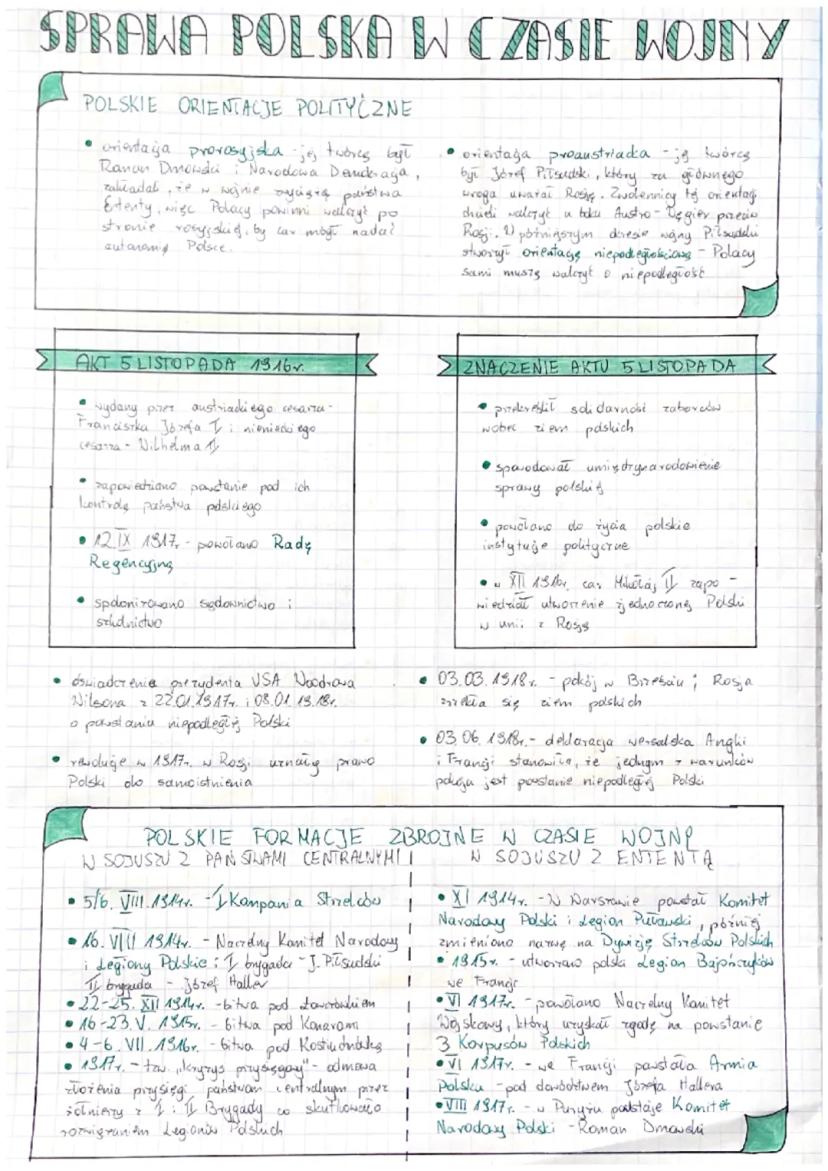 SPRAWA POLSKA W CZASIE WOJNY
POLSKIE ORIENTACJE POLITYCZNE
• orientacja prorosyjska - jej twórcą był
Roman Dmowski i Narodowa Demokracja,
zakładał, że w wojnie zwyciężą państwa
Ententy, więc Polacy powinni walczyć po
stronie rosyjskiej, by car mógł nadać
autonomię Polsce.
• orientacja proaustriacka - jej twórcą
był Józef Piłsudski, który za głównego
wroga uważał Rosję. Zwolennicy tej orientacji
chcieli walczyć u boku Austro-Węgier przeciw
Rosji. W późniejszym okresie wojny Piłsudski
stworzył orientację niepodległościową - Polacy
sami muszą walczyć o niepodległość
AKT 5 LISTOPADA 1916r.
• wydany przez austriackiego cesarza -
Franciszka Józefa I i niemieckiego
cesarza - Wilhelma II
• zapowiedziano powstanie pod ich
kontrolą państwa polskiego
• 12.IX 1917r. - powołano Radę
Regencyjną
• spolonizowano sądownictwo i
szkolnictwo
ZNACZENIE AKTU 5 LISTOPADA
• przekreślił solidarność zaborców
wobec ziem polskich
• spowodował umiędzynarodowienie
sprawy polskiej
• powołano do życia polskie
instytucje polityczne
• w XII 1916r. car Mikołaj II zapo-
wiedział utworzenie zjednoczonej Polski
w unii z Rosją
• oświadczenia prezydenta USA Woodrowa
Wilsona z 22.01.1917r. i 08.01.1918r.
o powstaniu niepodległej Polski
• rewolucje w 1917r. w Rosji uznały prawo
Polski do samoistnienia
• 03.03.1918r. - pokój w Brześciu; Rosja
zrzekła się ziem polskich
• 03.06.1918r. - deklaracja wersalska Anglii
i Francji stanowiła, że jednym z warunków
pokoju jest powstanie niepodległej Polski
POLSKIE FORMACJE ZBROJNE W CZASIE WOJNY
W SOJUSZU Z PAŃSTWAMI CENTRALNYMI
• 5/6. VIII.1914r. - I Kompania Strzelców
• 16. VIII 1914r. - Naczelny Komitet Narodowy
i Legiony Polskie: I brygada - J. Piłsudski
II brygada - Józef Haller
• 22-25. XII 1914r. - bitwa pod Łowczówkiem
• 16-23.V. 1915r. - bitwa pod Konarami
• 4-6. VII.1916r. - bitwa pod Kostiuchnówką
• 1917r. - tzw. "kryzys przysięgowy" - odmowa
złożenia przysięgi państwom centralnym przez
żołnierzy z I i II Brygady co skutkowało
rozwiązaniem Legionów Polskich
W SOJUSZU Z ENTENTĄ
• XI 1914r. - W Warszawie powstał Komitet
Narodowy Polski i Legion Puławski, później
zmieniono nazwę na Dywizję Strzelców Polskich
• 1915r. - utworzono polski Legion Bajończyków
we Francji
• VI 1917r. - powołano Naczelny Komitet
Wojskowy, który uzyskał zgodę na powstanie
3 Korpusów Polskich
• VI 1917r. - we Francji powstała Armia
Polska - pod dowództwem Józefa Hallera
• VIII 1917r. - w Paryżu powstaje Komitet
Narodowy Polski - Roman Dmowski